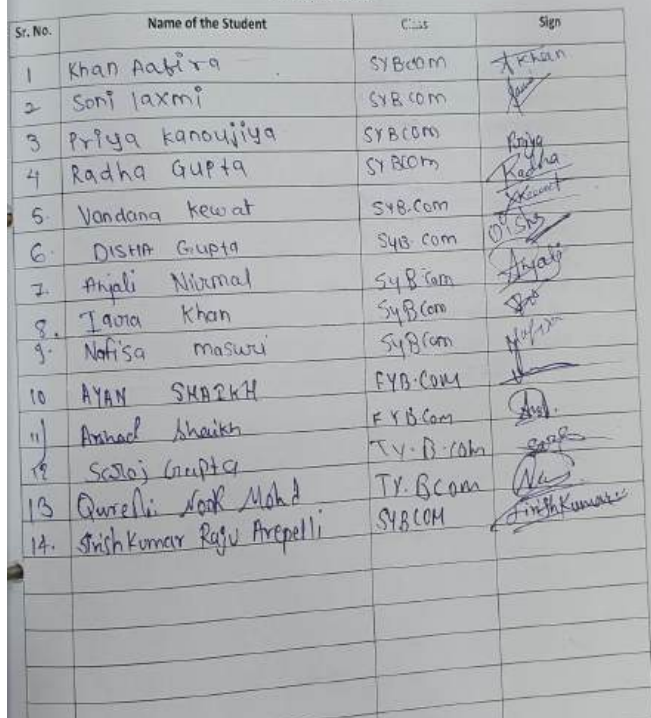 Sr. No. Name of the Student Class Sign
1 Khan Aafira SYBCOM AKhan
2 Soni laxmi SYBCOM
3 Priya Kanoujiya SYBCOM Priya
4 Radha Gupta SYBCOM Radha
5. Vandana Kewat SYB.Com
6. DISHA Gupta SyB.Com Disha
7. Anjali Nirmal SyB Com Anjali
8. Iqura Khan SyBCom
9. Nafisa masuri SyBCom
10 AYAN SHAIKH FYB.COM
11 Arshad Shaikh FYBCom
12 Saroj Gupta TY.B.Com
13 Noor Mohd TY.BCom
14. Raju Arepelli SYBCOM